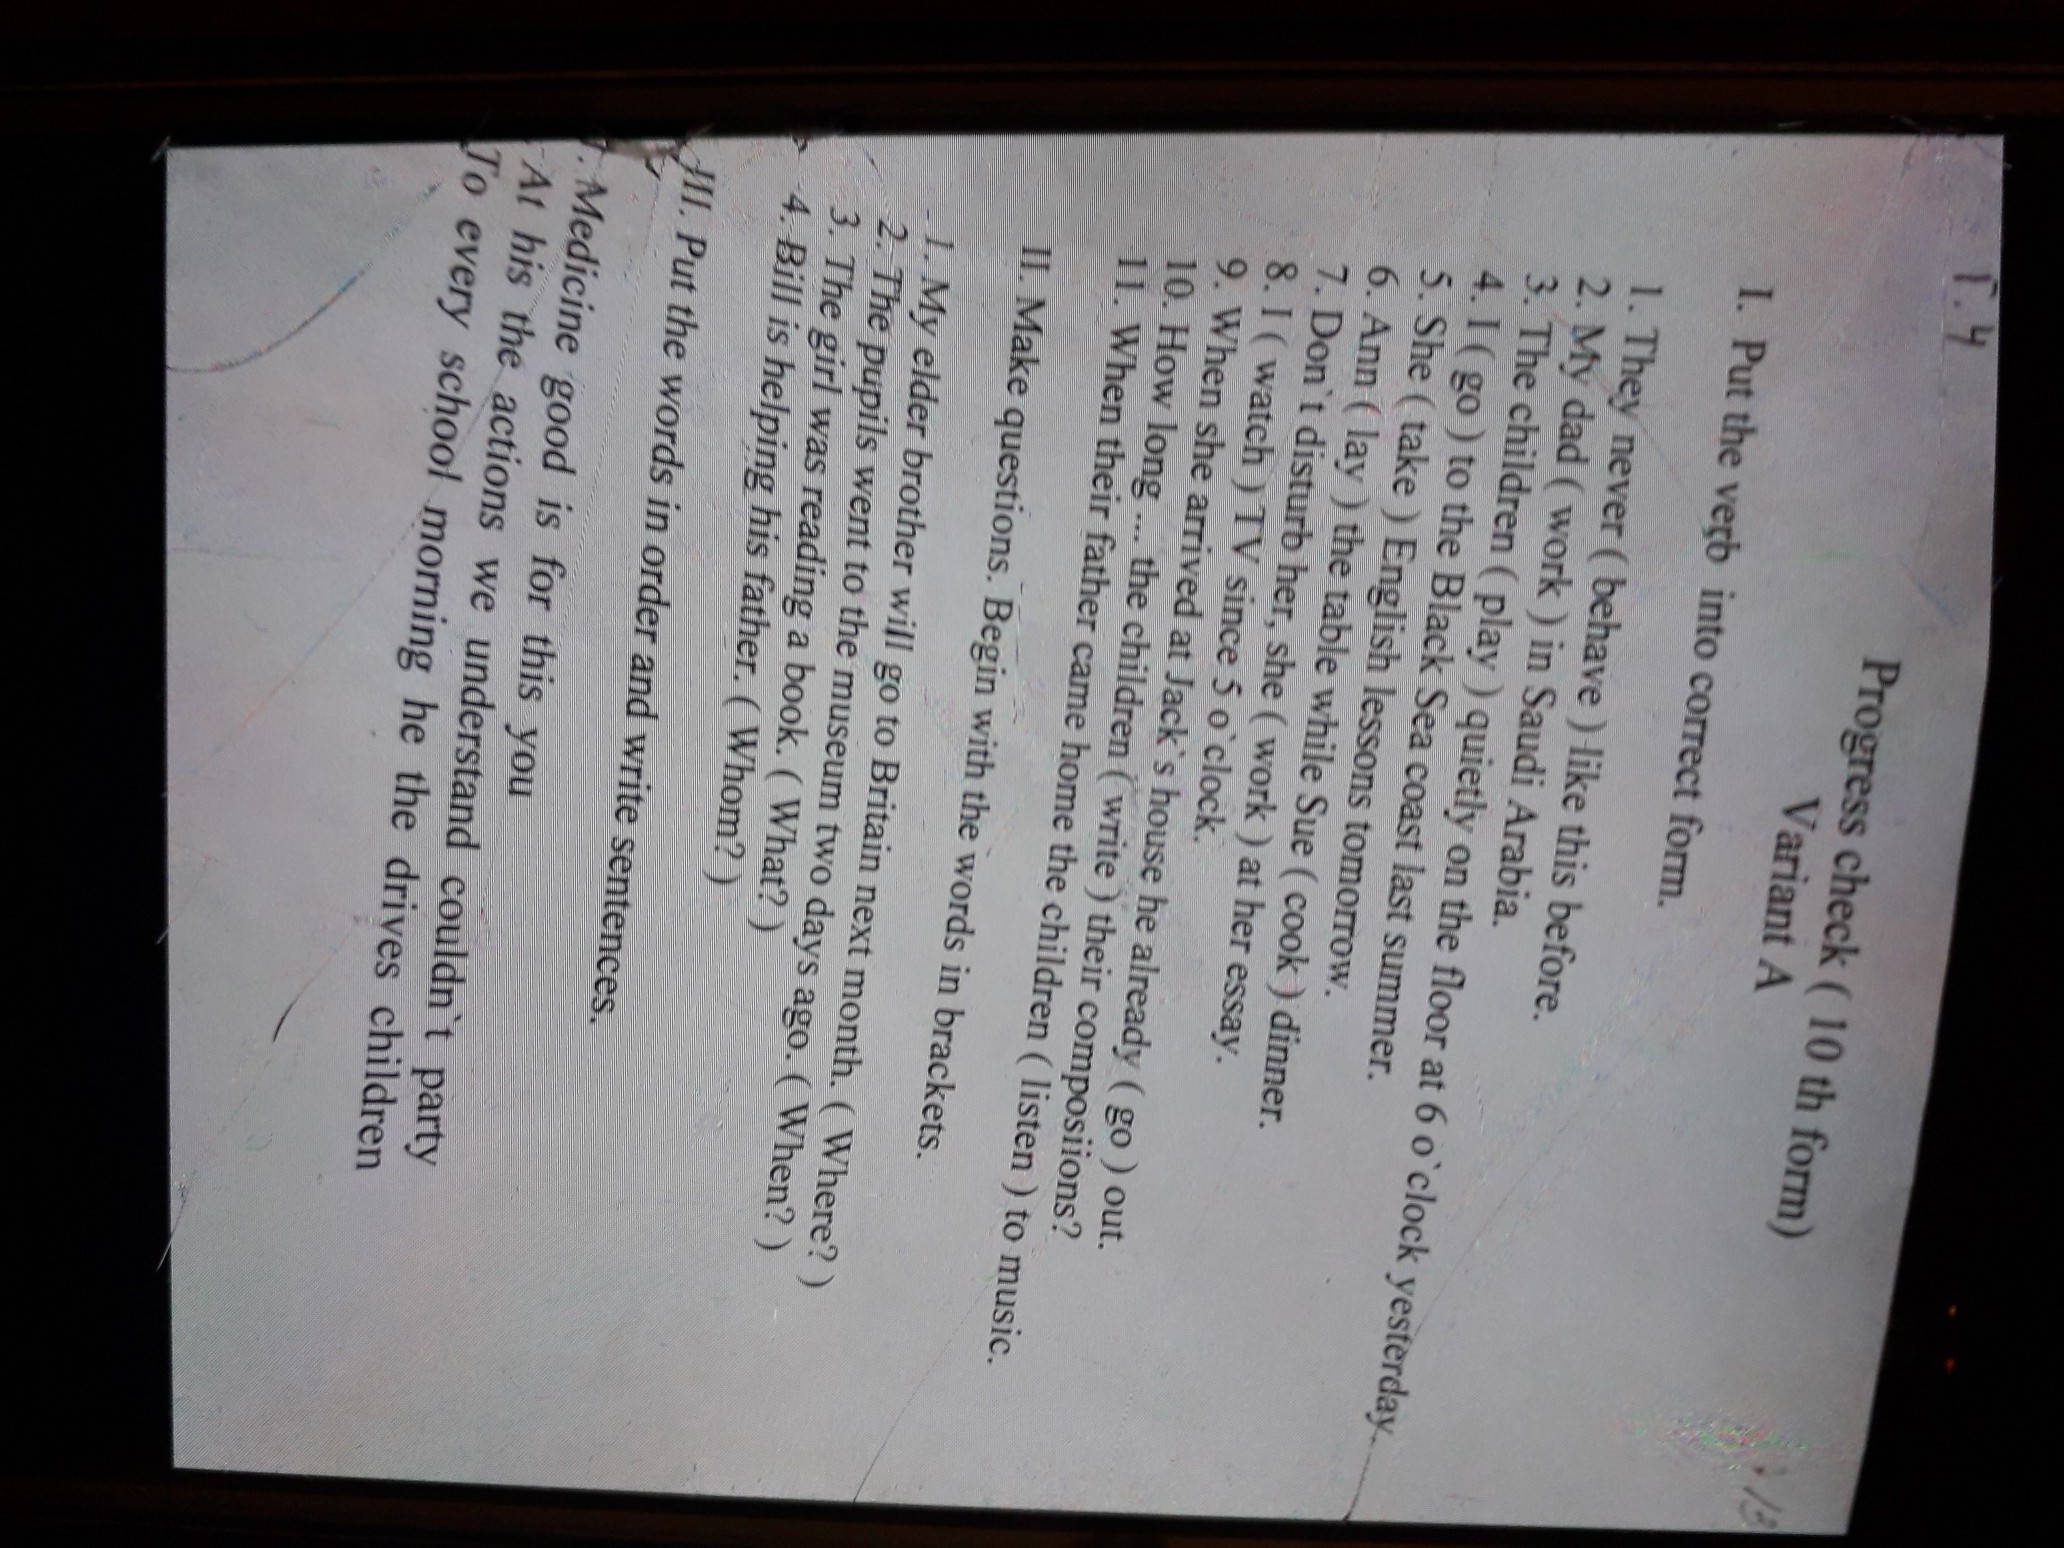 Progress check ( 10 th form)
Variant A
I. Put the verb into correct form.
1. They never ( behave ) like this before.
2. My dad ( work ) in Saudi Arabia.
3. The children ( play ) quietly on the floor at 6 o`clock yesterday.
4. I ( go ) to the Black Sea coast last summer.
5. She ( take ) English lessons tomorrow.
6. Ann ( lay ) the table while Sue ( cook ) dinner.
7. Don`t disturb her, she ( work ) at her essay.
8. I ( watch ) TV since 5 o`clock.
9. When she arrived at Jack`s house he already ( go ) out.
10. How long ... the children ( write ) their composiions?
11. When their father came home the children ( listen ) to music.
II. Make questions. Begin with the words in brackets.
1. My elder brother will go to Britain next month. ( Where? )
2. The pupils went to the museum two days ago. ( When? )
3. The girl was reading a book. ( What? )
4. Bill is helping his father. ( Whom? )
III. Put the words in order and write sentences.
. Medicine good is for this you
At his the actions we understand couldn`t party
To every school morning he the drives children